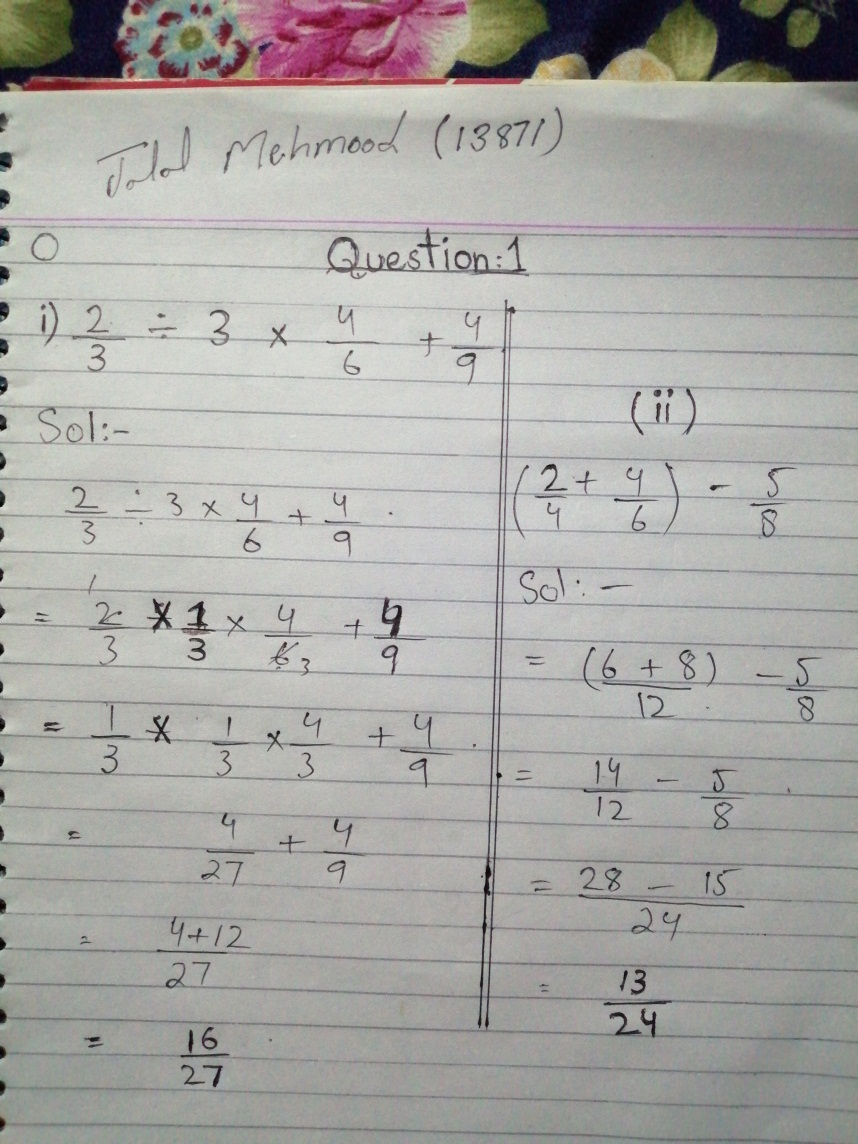 Jalal Mehmood (13871)
Question:1
i) 2/3 ÷ 3 × 4/6 + 4/9
Sol:-
2/3 ÷ 3 × 4/6 + 4/9
= 2/3 × 1/3 × 4/6 3 + 4/9
= 1/3 × 1/3 × 4/3 + 4/9
= 4/27 + 4/9
= 4+12/27
= 16/27
(ii)
(2/4 + 4/6) - 5/8
Sol:-
= (6 + 8)/12 - 5/8
= 14/12 - 5/8
= 28 - 15/24
= 13/24